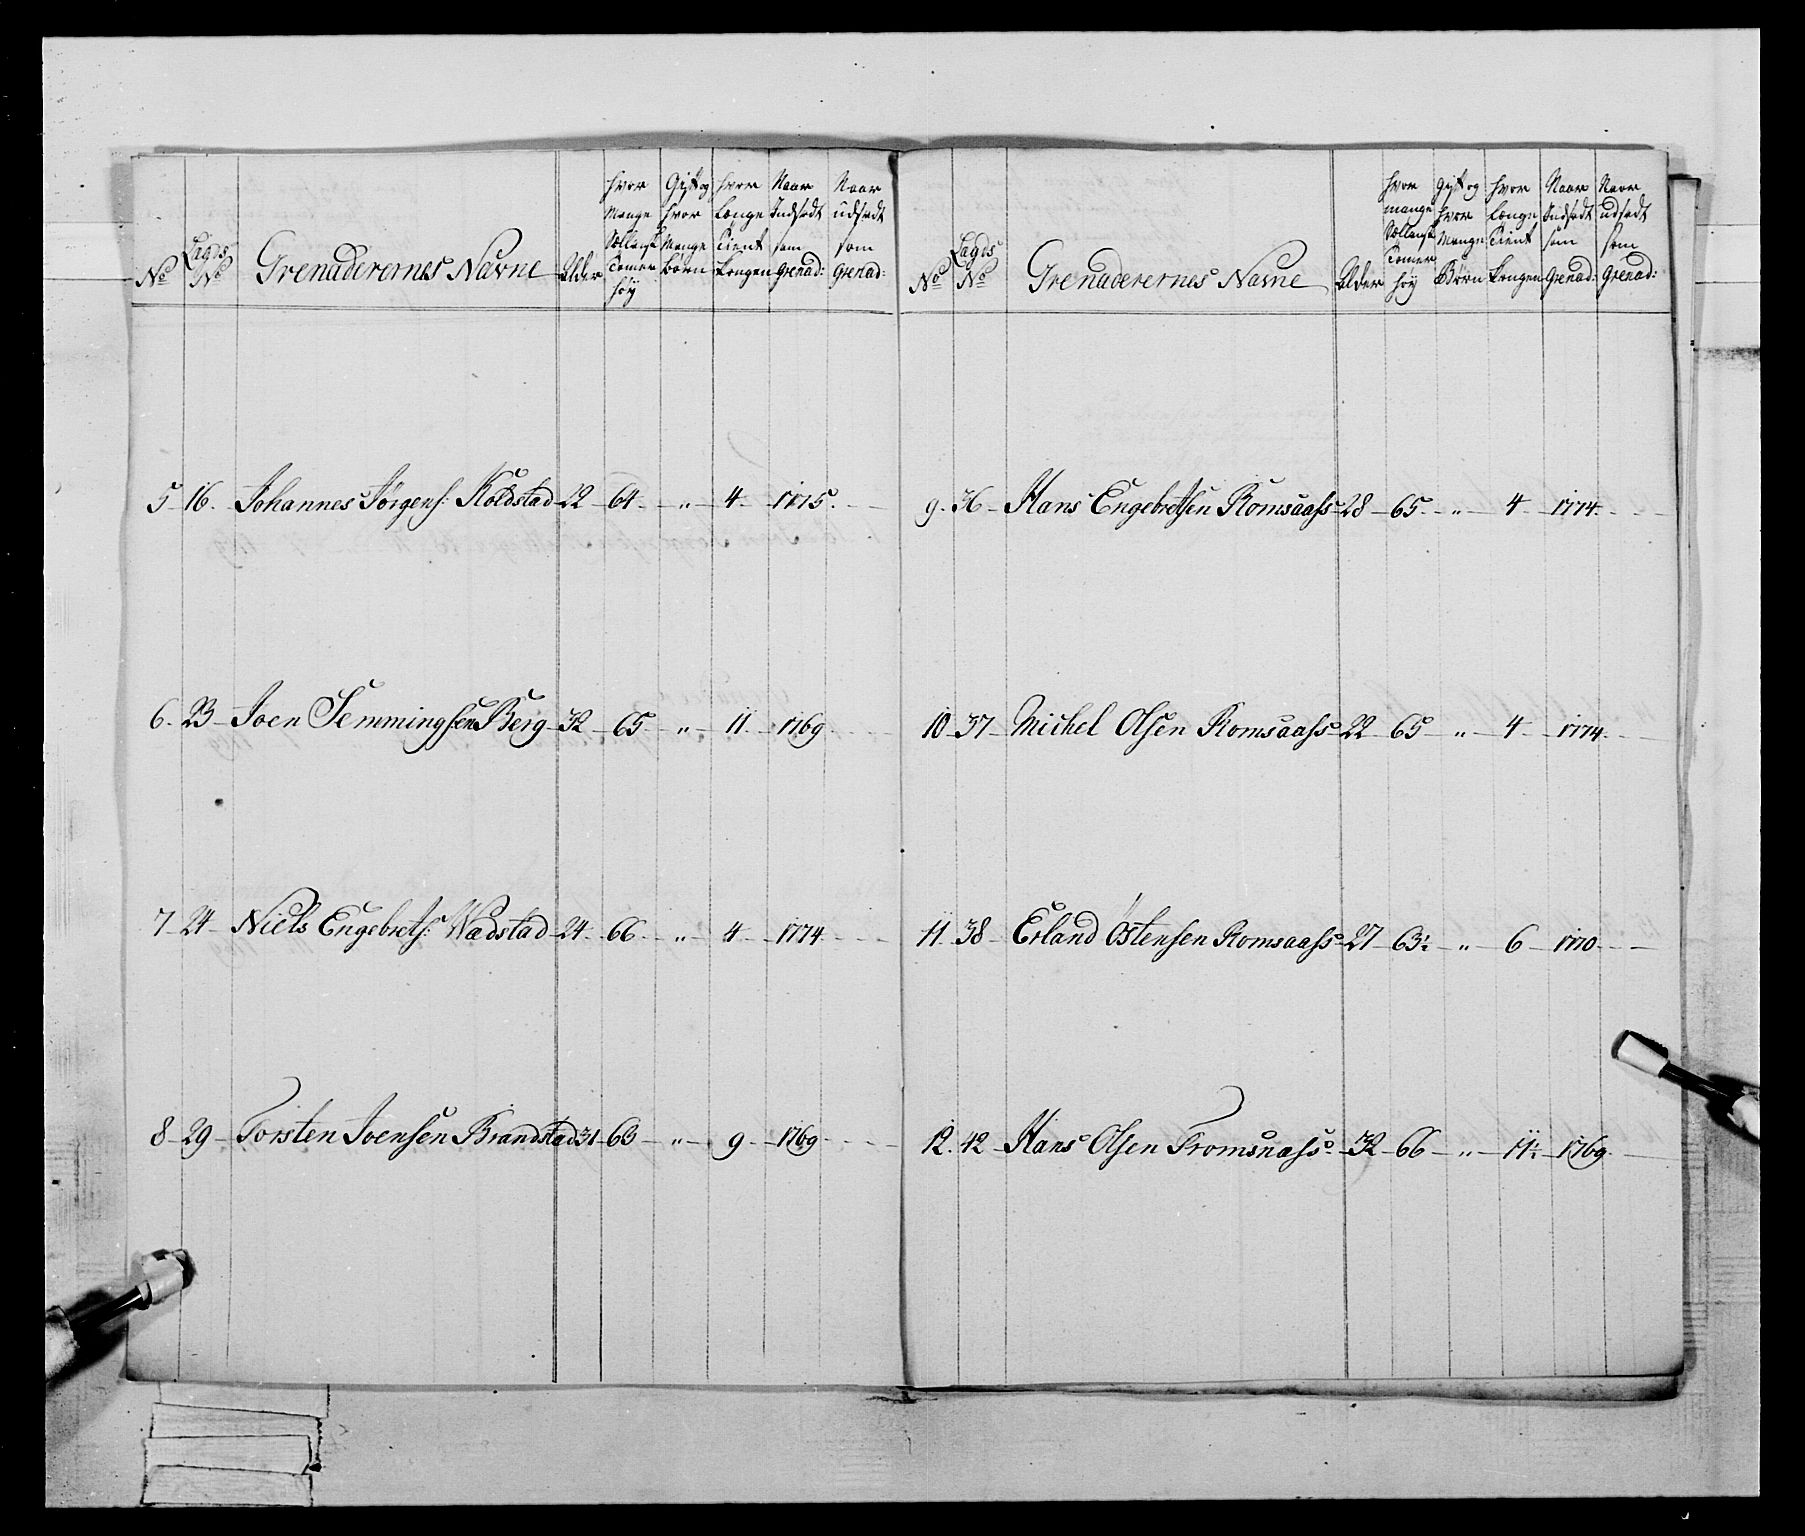 No
Lagds No
Grenaderernes Navne
Alder
hvor Mange Sællansk Tomer höy
Gift og hvor Mange börn
hvor Længe Tient kongen
Naar Indsadt som Grenad:
Naar udsadt som Grenad:
5 16. Johannes Jörgens: Koldstad 22 64 " 4 1775.
6. 23 Joen Semmingsen Berg 32 65 " 11 1769
7 24 Niels Engebrets: Wadstad 24 66 " 4 1774
8 29 Torsten Joensen Brandstad 31 63 " 9 1769
No
Lagds No
Grenaderernes Navne
Alder
hvor mange Sællansk Tomer höy
Gift og hvor Mange Börn
hvor Længe Tient kongen
Naar Indsadt som Grenad:
Naar udsadt som Grenad:
9. 36 Hans Engebretsen Romsaass 28 65 " 4 1774
10 37 Michel Olsen Romsaass 22 65 " 4 1774
11 38 Erland Östensen Romsaass 27 63½ " 6 1770
12. 42 Hans Olsen Fromsnass 32 66 " 11½ 1769